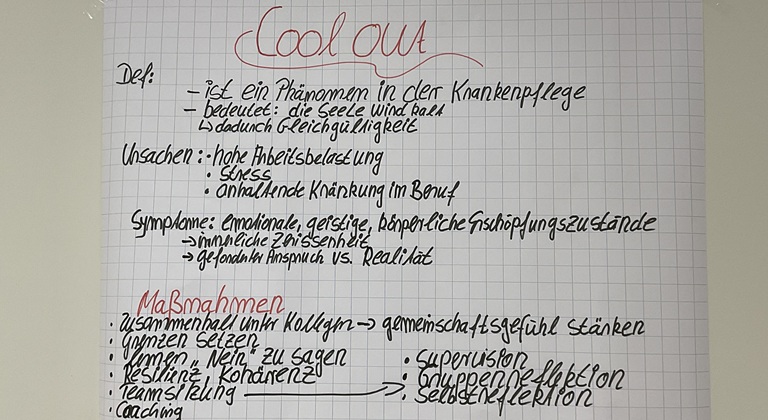 Cool out
Def:
- ist ein Phänomen in der Krankenpflege
- bedeutet: die Seele wird kalt
↳ dadurch Gleichgültigkeit
Ursachen: · hohe Arbeitsbelastung
· Stress
· anhaltende Kränkung im Beruf
Symptome: emotionale, geistige, körperliche Erschöpfungszustände
→ innerliche Zerissenheit
→ geforderter Anspruch vs. Realität
Maßnahmen
· Zusammenhalt unter Kollegen → gemeinschaftsgefühl stärken
· Grenzen setzen
· lernen „Nein" zu sagen
· Resilienz, Kohärenz
· Teamsitzung →
· Coaching
· Supervision
· Gruppenreflektion
· Selbstreflektion